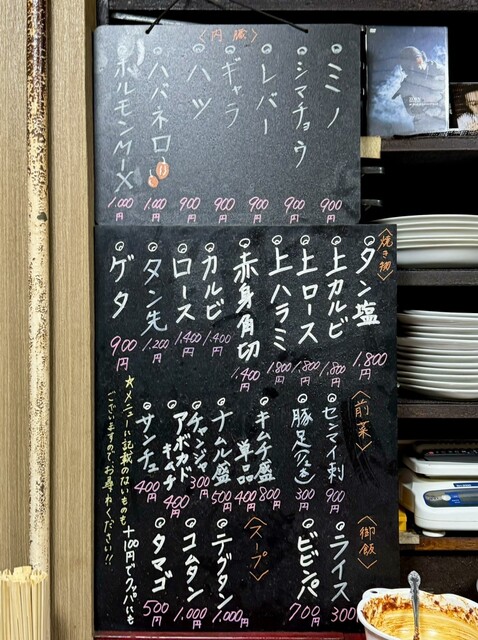 〈内臓〉
ミノ 900円
シマチョウ 900円
レバー 900円
ギャラ 900円
ハツ 900円
ハバネロ 1,000円
ホルモンMIX 1,000円
〈焼き物〉
タン塩 1,800円
上カルビ 1,800円
上ロース 1,800円
上ハラミ 1,800円
赤身角切 1,400円
カルビ 1,400円
ロース 1,400円
タン先 1,200円
ゲタ 900円
〈前菜〉
センマイ刺 900円
豚足 300円
キムチ盛 800円
単品 400円
ナムル盛 500円
チャンジャ 300円
アボカドキムチ 400円
サンチュ 400円
〈御飯〉
ライス 300円
ビビンパ 700円
〈スープ〉
テグタン 1,000円
コムタン 1,000円
タマゴ 500円
+100円でクッパにも
★メニューに記載のないものも
ございますのでお尋ねください!!